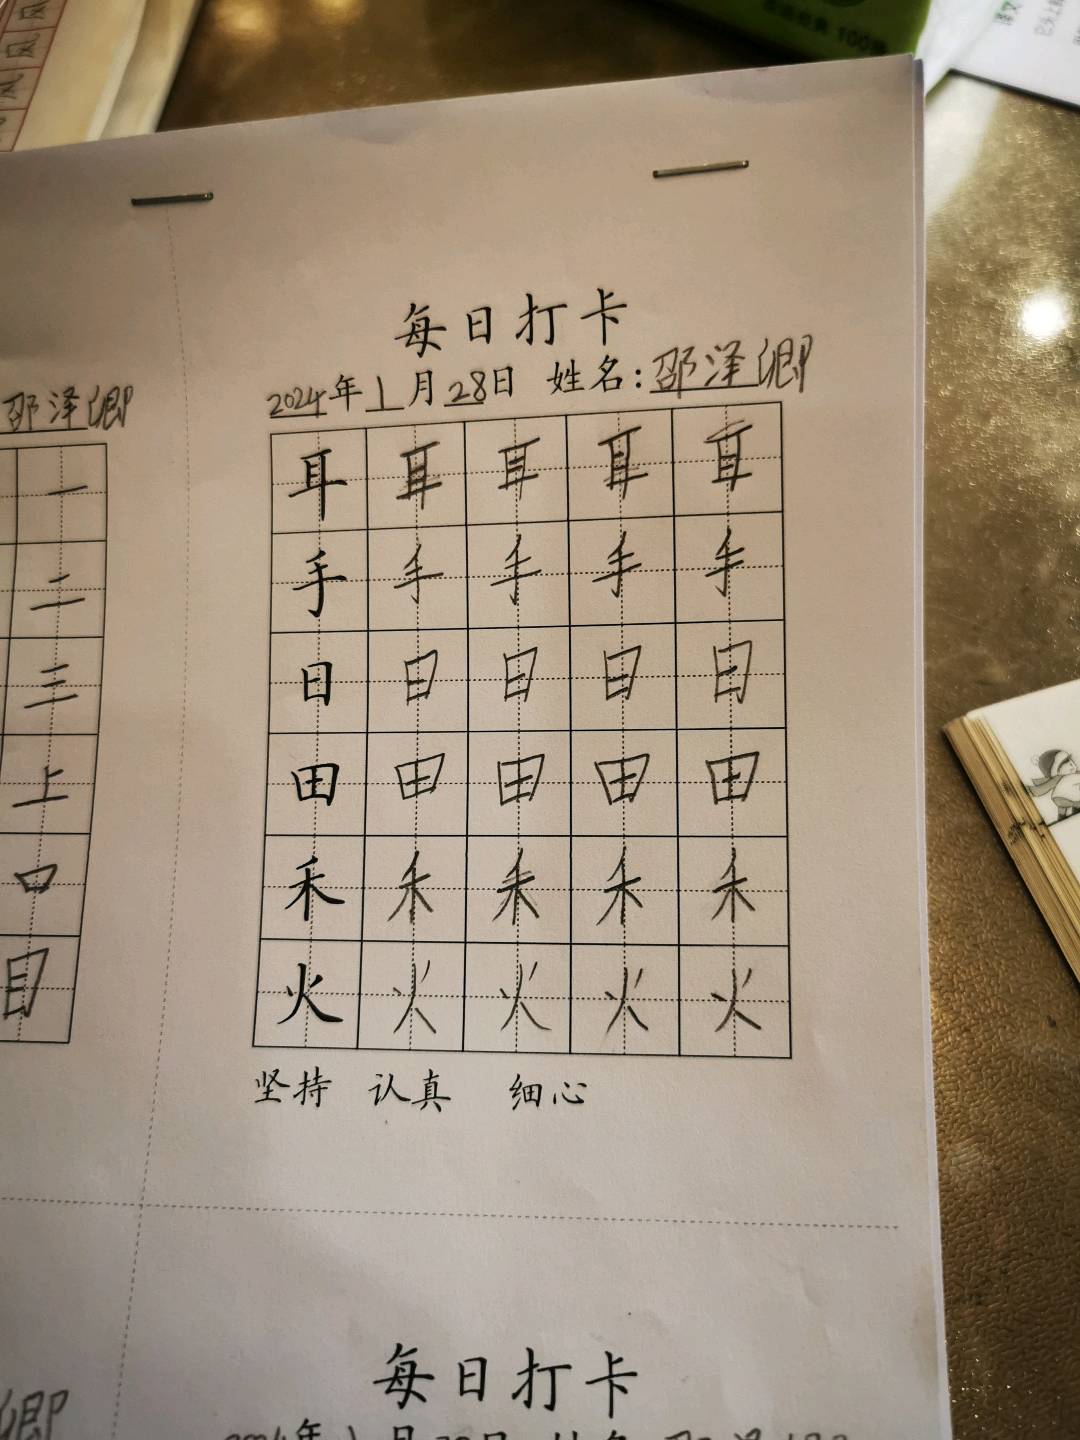 风
风
风
100
每日打卡
2024年1月28日 姓名:邵泽卿
邵泽卿
耳 耳 耳 耳 耳
手 手 手 手 手
日 日 日 日 日
田 田 田 田 田
禾 禾 禾 禾 禾
火 火 火 火 火
坚持 认真 细心
一
二
三
上
口
目
每日打卡
卿